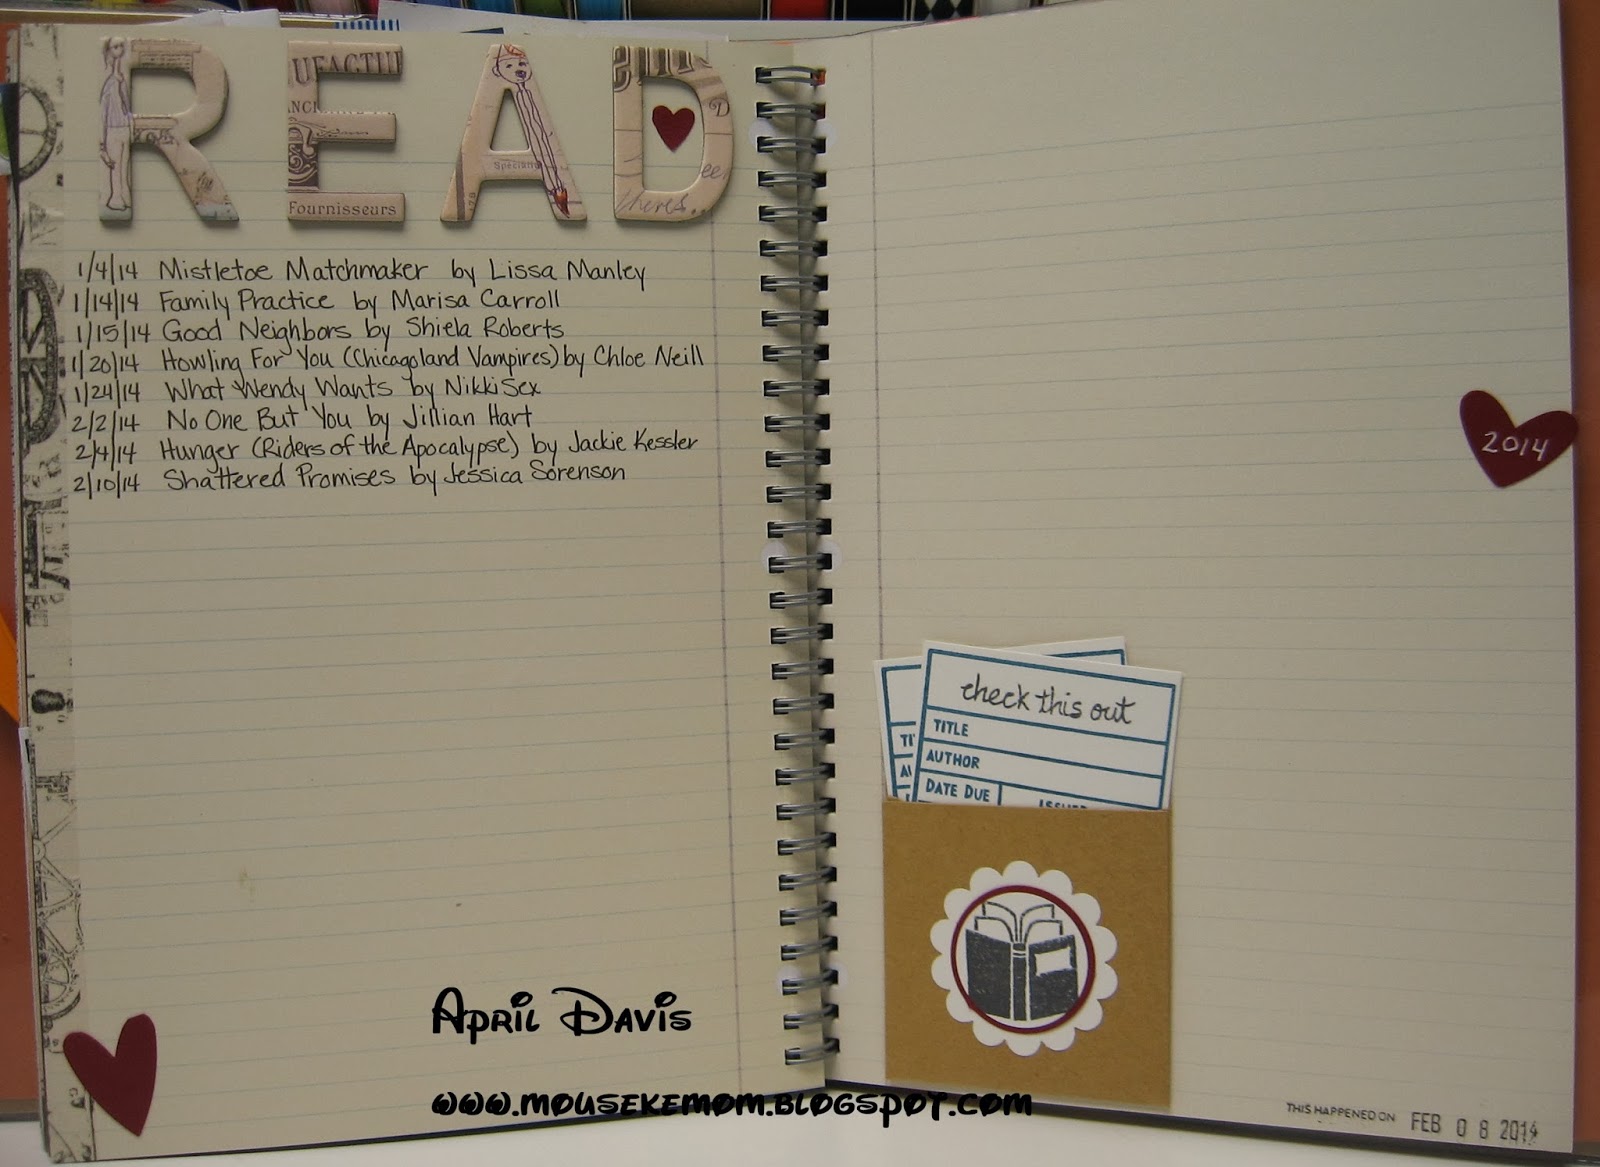 READ
UFACTU
ANCI
Fournisseurs
D
theres..
1/4/14 Mistletoe Matchmaker by Lissa Manley
1/14/14 Family Practice by Marisa Carroll
1/15/14 Good Neighbors by Shiela Roberts
1/20/14 Howling For You (Chicagoland Vampires) by Chloe Neill
1/24/14 What Wendy Wants by Nikki Sex
2/2/14 No One But You by Jillian Hart
2/4/14 Hunger (Riders of the Apocalypse) by Jackie Kessler
2/10/14 Shattered Promises by Jessica Sorenson
2014
check this out
TITLE
AUTHOR
DATE DUE
April Davis
www.mousekemom.blogspot.com
THIS HAPPENED ON FEB 08 2014